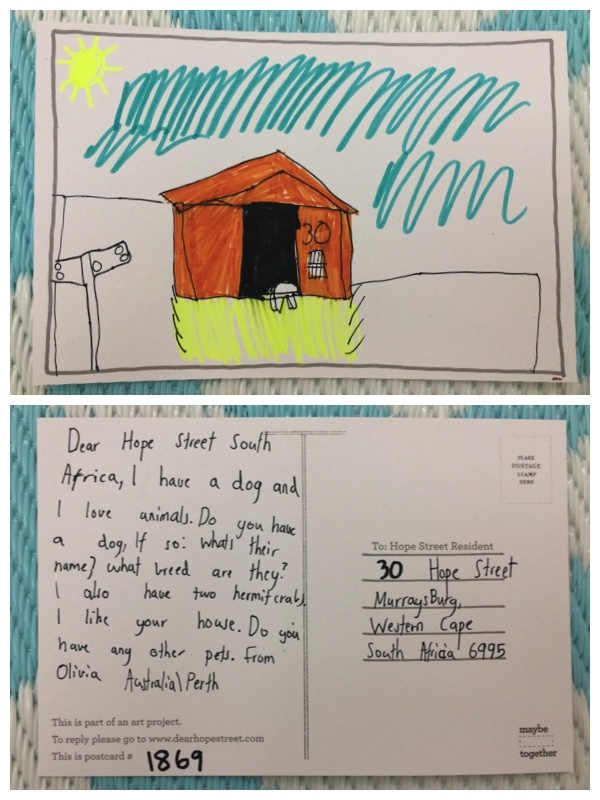 30
Dear Hope Street South
Africa, I have a dog and
I love animals. Do you have
a dog, If so: whats their
name? what breed are they?
I also have two hermitcrabs,
I like your house. Do you
have any other pets. From
Olivia Australia\Perth
This is part of an art project.
To reply please go to www.dearhopestreet.com
This is postcard # 1869
PLACE
POSTAGE
STAMP
HERE
To: Hope Street Resident
30 Hope Street
MurraysBurg,
Western Cape
South Africa 6995
maybe
together